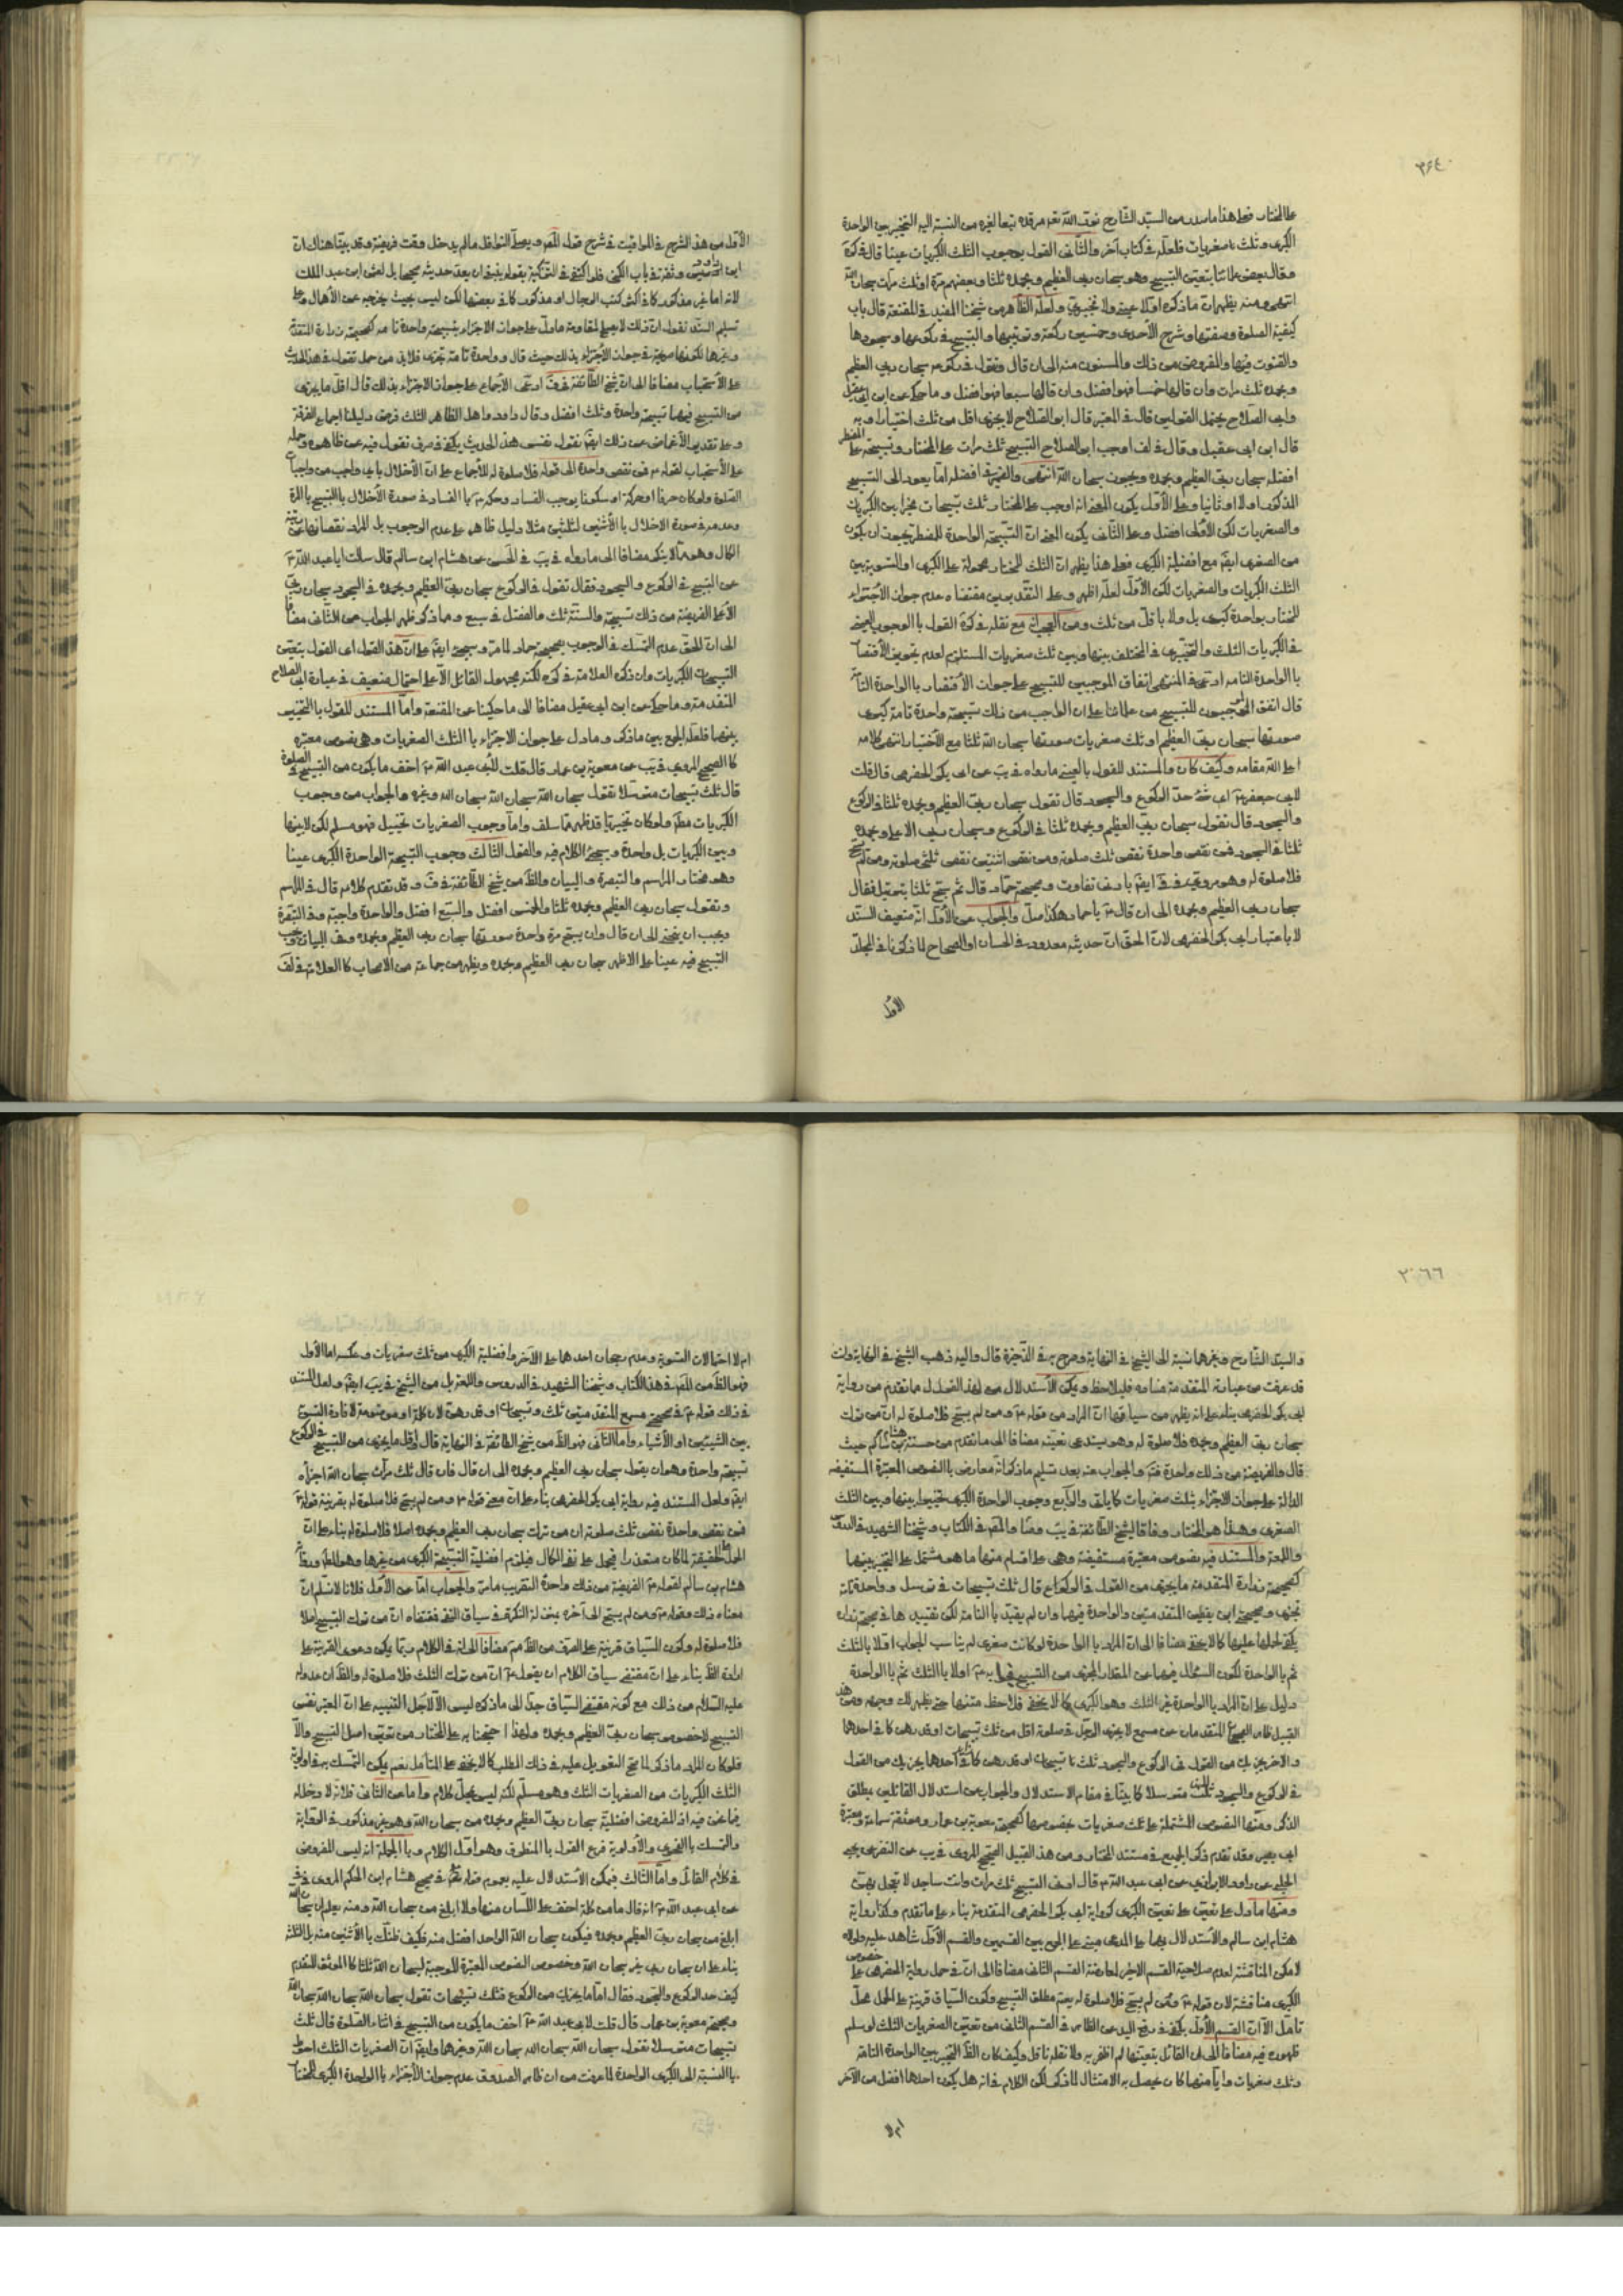 ٣٦٤
على المختار فعلى هذا ما صدر من السيد الشارح نور الله تعه مرقده تبعا لغيره من النسبة اليه التخيير بين الواحدة
الكبرى وثلث صغريات فلعله في كتاب آخر والثاني القول بوجوب الثلث الكبريات عينا قال في كره
وقال بعض علمائنا بتعين التسبيح وهو سبحان ربي العظيم وبحمده ثلثا وبعضهم مرة او ثلث مرات سبحان الله
انتهى ومنه يظهر ان ما ذكره اولا عينى ولا تخييرى ولعله الظاهر من شيخنا المفيد في المقنعة قال باب
كيفية الصلوة وصفتها وشرح الاحدى وخمسين ركعة وترتيبها والتسبيح في ركوعها وسجودها
والقنوت فيها والمفروض من ذلك والمسنون منه الى ان قال وتقول في ركوعه سبحان ربي العظيم
وبحمده ثلث مرات وان قالها خمسا فهو افضل وان قالها سبعا فهو افضل وما حكى عن ابن ابي عقيل
وابي الصلاح يحتمل القولين قال في المعتبر قال ابو الصلاح لا يجزى اقل من ثلث اختيارا وبه
قال ابن ابي عقيل وقال في لف اوجب ابو الصلاح التسبيح ثلث مرات على المختار وتسبيحة على المضطر
افضله سبحان ربي العظيم وبحمده ويجوز سبحان الله انتهى والضمير في افضله اما يعود الى التسبيح
المذكور اولا او ثانيا وعلى الأول يكون المعنى انه اوجب على المختار ثلث تسبيحات مخيرا بين الكبريات
والصغريات لكن الأولى افضل وعلى الثاني يكون المعنى ان التسبيحة الواحدة للمضطر يجوز ان يكون
من الصغرى ايضا مع افضلية الكبرى فعلى هذا يظهر ان الثلث للمختار محمولة على الكبرى او التسوية بين
الثلث الكبريات والصغريات لكن الأول لعله اظهر وعلى التقديرين مقتضاه عدم جواز الأجتزاء
للمختار بواحدة كبرى بل ولا باقل من ثلث ومن العجب مع نقله في كره القول بالوجوب العينى
في الكبريات الثلث والتخييرى في المختلف بينها وبين ثلث صغريات المستلزم لعدم تجويز الأقتصار
بالواحدة التامه ادعى في المنتهى اتفاق الموجبين للتسبيح على جواز الأقتصار بالواحدة التامة
قال اتفق الموجبون للتسبيح من علمائنا على ان الواجب من ذلك تسبيحة واحدة تامة كبرى
صورتها سبحان ربي العظيم او ثلث صغريات صورتها سبحان الله ثلثا مع الأختيار انتهى كلامه
اعلى الله مقامه وكيف كان والمستند للقول بالعينى ما رواه في يب عن ابي بكر الحضرمى قال قلت
لابي جعفر ع اى شئ حد الركوع والسجود قال تقول سبحان ربي العظيم وبحمده ثلثا في الركوع
والسجود قال تقول سبحان ربي العظيم وبحمده ثلثا في الركوع وسبحان ربي الاعلى وبحمده
ثلثا في السجود فمن نقص واحدة نقص ثلث صلوته ومن نقص اثنتين نقص ثلثي صلوته ومن لم يسبح
فلا صلوة له وهو مروى في في ايضا بادنى تفاوت وصحيحة حماد قال ثم سبح ثلثا بترتيل فقال
سبحان ربي العظيم وبحمده الى ان قال ع يا حماد هكذا صل والجواب عن الأول انه ضعيف السند
لا باعتبار ابي بكر الحضرمى لان الحق ان حديثه معدود في الحسان او الصحاح لما ذكرنا في المجلد
الأول
الأول من هذا الشرح في المواقيت في شرح قول المص ويصلى النوافل ما لم يدخل وقت فريضة وقد بينا هناك ان
ابن داود وثقه في باب الكنى فلو اكتفى في التزكية بقوله ينبغى ان يعد حديثه صحيحا بل لعثمان بن عبد الملك
لانه اما غير مذكور كما في اكثر كتب الرجال او مذكور كما في بعضها لكن ليس بحيث يخرجه عن الأهمال وعلى
تسليم السند نقول ان ذلك لا يصلح لمقاومة ما دل على جواز الاجتزاء بتسبيحة واحدة تامه كصحيحة زرارة المتقدمة
وغيرها لكونها صريحة في جواز الأجتزاء بذلك حيث قال وواحدة تامة تجزى فلابد من حمل تقول في هذا الحديث
على الأستحباب مضافا الى ان شيخ الطائفة في ف ادعى الأجماع على جواز الاجتزاء بذلك قال اقل ما يجزى
من التسبيح فيهما تسبيحة واحدة وثلث افضل وقال داود واهل الظاهر الثلث فرض دليلنا اجماع الفرقة
وعلى تقدير الأغماض عن ذلك ايضا نقول نفس هذا الحديث يكفى في صرف تقول فيه عن ظاهره وحمله
على الأستحباب لقوله ع فمن نقص واحدة الى قوله فلا صلوة له للأجماع على ان الأخلال باى واجب من واجبات
الصلوة ولو كان حرفا او حركة او سكونا يوجب الفساد وحكمه ع بالفساد في صورة الأخلال بالتسبيح بالمرة
وعدمه في صورة الاخلال بالأثنين لثلثين مثلا دليل ظاهر على عدم الوجوب بل المراد نقصانها عن مرتبة
الكمال وهو مما لا ينكر مضافا الى ما رواه في يب في الحسن عن هشام ابن سالم قال سئلت ابا عبد الله ع
عن التسبيح في الركوع والسجود فقال تقول في الركوع سبحان ربي العظيم وبحمده وفي السجود سبحان ربي
الأعلى الفريضة من ذلك تسبيحة والسنة ثلث والفضل في سبع ومما ذكر ظهر الجواب عن الثاني مضافا
الى ان الحق عدم التمسك في الوجوب بصحيحة حماد لما مر وسيجئ ايضا على ان هذا القول اى القول بتعين
التسبيحات الكبريات وان ذكره العلامة في كره لكنه مجهول القائل الا على احتمال ضعيف في عبارة ابي الصلاح
المتقدمة وما حكى عن ابن ابي عقيل مضافا الى ما حكينا عن المقنعة واما المستند للقول بالتخيير
بينهما فلعله الجمع بين ما ذكر وما دل على جواز الاجتزاء بالثلث الصغريات وهى نصوص معتبرة
كالصحيح المروى في يب عن معوية بن عمار قال قلت لابي عبد الله ع اخف ما يكون من التسبيح في الصلوة
قال ثلث تسبيحات مترسلا تقول سبحان الله سبحان الله سبحان الله وغيره والجواب عن وجوب
الكبريات مطلقا ولو كان تخييريا قد ظهر مما سلف واما وجوب الصغريات تخييرا فهو مسلم لكن لا بينها
وبين الكبريات بل واحدة وسيجئ الكلام فيه والقول الثالث وجوب التسبيحة الواحدة الكبرى عينا
وهو مختار المراسم والتبصرة والبيان والظ من شيخ الطائفة في ف وقد تقدم كلامه قال في المراسم
وتقول سبحان ربي العظيم وبحمده ثلثا والخمس افضل والسبع افضل والواحدة واجبة وفي التبصرة
ويجب ان ينحنى الى ان قال وان يسبح مرة واحدة صورتها سبحان ربي العظيم وبحمده وفي البيان ويجب
التسبيح فيه عينا على الاظهر سبحان ربي العظيم وبحمده ويظهر من جماعة من الاصحاب كالعلامة في لف
٣٠٦٦
والسيد الشارح وغيرهما نسبة الى الشيخ في النهاية وصرح به في الذخيرة قال واليه ذهب الشيخ في النهاية وانت
قد عرفت من عبارته المتقدمة منافيه فليلاحظ ويمكن الأستدلال من لهذا القول ما تقدم من رواية
ابي بكر الحضرمى بناء على انه يظهر من سياقها ان المراد من قوله ع ومن لم يسبح فلا صلوة له ان من ترك
سبحان ربي العظيم وبحمده فلا صلوة له وهو يستدعى تعينه مضافا الى ما تقدم من حسنة هشام بن سالم حيث
قال والفريضة من ذلك واحدة والجواب عنه بعد تسليم ما ذكر انه معارض بالنصوص المعتبرة المستفيضة
الدالة على جواز الاجتزاء بثلث صغريات كما يأتى والرابع وجوب الواحدة الكبرى تخييرا بينها وبين الثلث
الصغرى وهذا هو المختار وفاقا لشيخ الطائفة في يب وصا والمص في الكتاب وشيخنا الشهيد في الدروس
واللمعة والمستند فيه نصوص معتبرة مستفيضة وهى على اقسام منها ما هو مشتمل على التخيير بينهما
كصحيحة زرارة المتقدمة ما يجزى من القول في الركوع قال ثلث تسبيحات في ترسل وواحدة تامة
تجزى وصحيحة ابن يقطين المتقدمتين والواحدة فيهما وان لم يقيد بالتامة لكن تقييدها في صحيحة زرارة
يكفى لحملها عليها كما لا يخفى مضافا الى ان المراد بالواحدة لو كانت صغرى لم يناسب الجواب اولا بالثلث
ثم بالواحدة لكون السؤال فيهما عن المقدار المجزى من التسبيح فجوابه ع اولا بالثلث ثم بالواحدة
دليل على ان المراد بالواحدة غير الثلث وهو الكبرى كما لا يخفى فلاحظ متنهما حتى يظهر لك وجهه ومن هذا
القبيل ظاهر الصحيح المتقدمان عن مسمع لا يجزى الرجل في صلوته اقل من ثلث تسبيحات او قدرهن كما في احدهما
والآخر يجزيك من القول في الركوع والسجود ثلث تسبيحات او قدرهن كما في آخر احدها يجزيك من القول
في الركوع والسجود ثلث تسبيحات مترسلا كما بينا في مقام الاستدلال والجواب عن استدلال القائلين بمطلق
الذكر ومنها النصوص المشتملة على ثلث صغريات بخصوصها كصحيحة معوية بن عمار وموثقة سماعة ومعتبرة
ابي بصير وقد تقدم ذكر الجميع في مستند المختار ومن هذا القبيل الصحيح المروى في يب عن النضر عن يحيى
الحلبي عن داود الابزارى عن ابي عبد الله ع قال ادنى التسبيح ثلث مرات وانت ساجد لا تعجل بهن
ومنها ما دل على تعين الكبرى كرواية ابي بكر الحضرمى المتقدمة بناء على ما تقدم وكذا رواية
هشام ابن سالم والأستدلال بهما على المدعى مبنى على الجمع بين القسمين والقسم الأول شاهد عليه ولولاه
لامكن المناقشة لعدم صلاحية القسم الاخير لمعارضة القسم الثاني مضافا الى ان في حمل رواية الحضرمى على خصوص
الكبرى مناقشة لان قوله ع ومن لم يسبح فلا صلوة له يعم مطلق التسبيح وكون السياق قرينة على الحمل محل
تأمل الا ان القسم الأول يكفى في رفع اليد عن الظاهر في القسم الثاني من تعين الصغريات الثلث لو سلم
ظهوره فيه مضافا الى ان القائل بتعينها لم اظفر به ولا نقله ناقل وكيف كان الظ التخيير بين الواحدة التامة
وثلث صغريات وايا منهما كان يحصل به الامتثال لما ذكر لكن الكلام في انه هل يكون احدهما افضل من الآخر
ام لا
ام لا احتمالات التسوية وعدم رجحان احدهما على الآخر وافضلية الكبرى من ثلث صغريات وعكسه اما الأول
فهو الظ من المص في هذا الكتاب وشيخنا الشهيد في الدروس واللمعة بل من الشيخ في يب ايضا ولعل المستند
في ذلك قوله ع في صحيحتى مسمع المتقدمتين ثلث تسبيحات او قدرهن لان كلمة او موضوعة لافادة التسوية
بين الشيئين او الأشياء واما الثاني فهو الظ من شيخ الطائفة في النهاية قال اقل ما يجزى من التسبيح في الركوع
تسبيحة واحدة وهو ان يقول سبحان ربي العظيم وبحمده الى ان قال فان قال ثلث مرات سبحان الله اجزأه
ايضا ولعل المستند فيه رواية ابي بكر الحضرمى بناء على ان معنى قوله ع ومن لم يسبح فلا صلوة له بقرينة قوله ع
فمن نقص واحدة نقص ثلث صلوته ان من ترك سبحان ربي العظيم وبحمده اصلا فلا صلوة له بناء على ان
الحمل على الحقيقة لما كان متعذرا فيحمل على نفى الكمال فيلزم افضلية التسبيحة الكبرى من غيرها وهو المط ورواية
هشام بن سالم لقوله ع الفريضة من ذلك واحدة التقريب ما مر والجواب اما عن الأول فلأنا لا نسلم ان
معناه ذلك وقوله ع ومن لم يسبح الى آخره بمنزلة النكرة في سياق النفى فمقتضاه ان من ترك التسبيح اصلا
فلا صلوة له وكون السياق قرينة على الصرف من الظ مم مضافا الى انه في الكلام ربما يكون دعوى القرينة على
ارادة الظ بناء على ان مقتضى سياق الكلام ان يقول ع ان من ترك الثلث فلا صلوة له والظ ان عدوله
عليه السلام من ذلك مع كونه مقتضى السياق جدا الى ما ذكره ليس الا لأجل التنبيه على ان المعتبر نفس
التسبيح لا خصوص سبحان ربي العظيم وبحمده ولهذا احتججنا به على المختار من تعين اصل التسبيح والا
فلو كان المراد ما ذكر لما صح التعويل عليه في ذلك المطلب كما لا يخفى على المتأمل نعم يمكن التمسك به في اولوية
الثلث الكبريات من الصغريات الثلث وهو مسلم لكنه ليس محل كلام واما عن الثاني فلأنه لا دخل له
فيما نحن فيه اذ المفروض افضلية سبحان ربي العظيم وبحمده من سبحان الله وهو غير مذكور في الرواية
والتمسك بالفحوى والأولوية فرع القول بالمنطوق وهو اول الكلام وبالجملة انه ليس المفروض
في كلام القائل واما الثالث فيمكن الأستدلال عليه بعموم قوله ع في صحيح هشام ابن الحكم المروى في في
عن ابي عبد الله ع انه قال ما من كلمة اخف على اللسان منها ولا ابلغ من سبحان الله ومنه يعلم ان سبحان الله
ابلغ من سبحان ربي العظيم وبحمده فيكون سبحان الله الواحد افضل منه فكيف ظنك بالأثنين منه بل الثلثة
بناء على ان سبحان ربي غير سبحان الله وخصوص النصوص المعتبرة الموجبة لسبحان الله ثلثا كالموثق المتقدم
كيف حد الركوع والسجود فقال اما ما يجزيك من الركوع فثلث تسبيحات تقول سبحان الله سبحان الله سبحان الله
وصحيحة معوية بن عمار قال قلت لابي عبد الله ع اخف ما يكون من التسبيح في اثناء الصلوة قال ثلث
تسبيحات مترسلا تقول سبحان الله سبحان الله سبحان الله وغيرهما وايضا ان الصغريات الثلث احوط
بالنسبة الى الكبرى الواحدة لما عرفت من ان ظاهر الصدوق عدم جواز الأجتزاء بالواحدة الكبرى للمختار